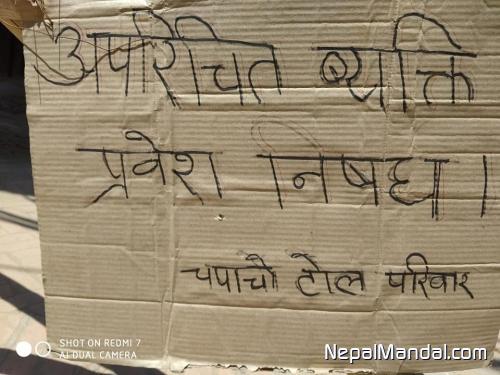 अपरिचित ब्यक्ति
प्रवेश निषद्य।
चपाचो टोल परिवार
SHOT ON REDMI 7
AI DUAL CAMERA
NepalMandal.com